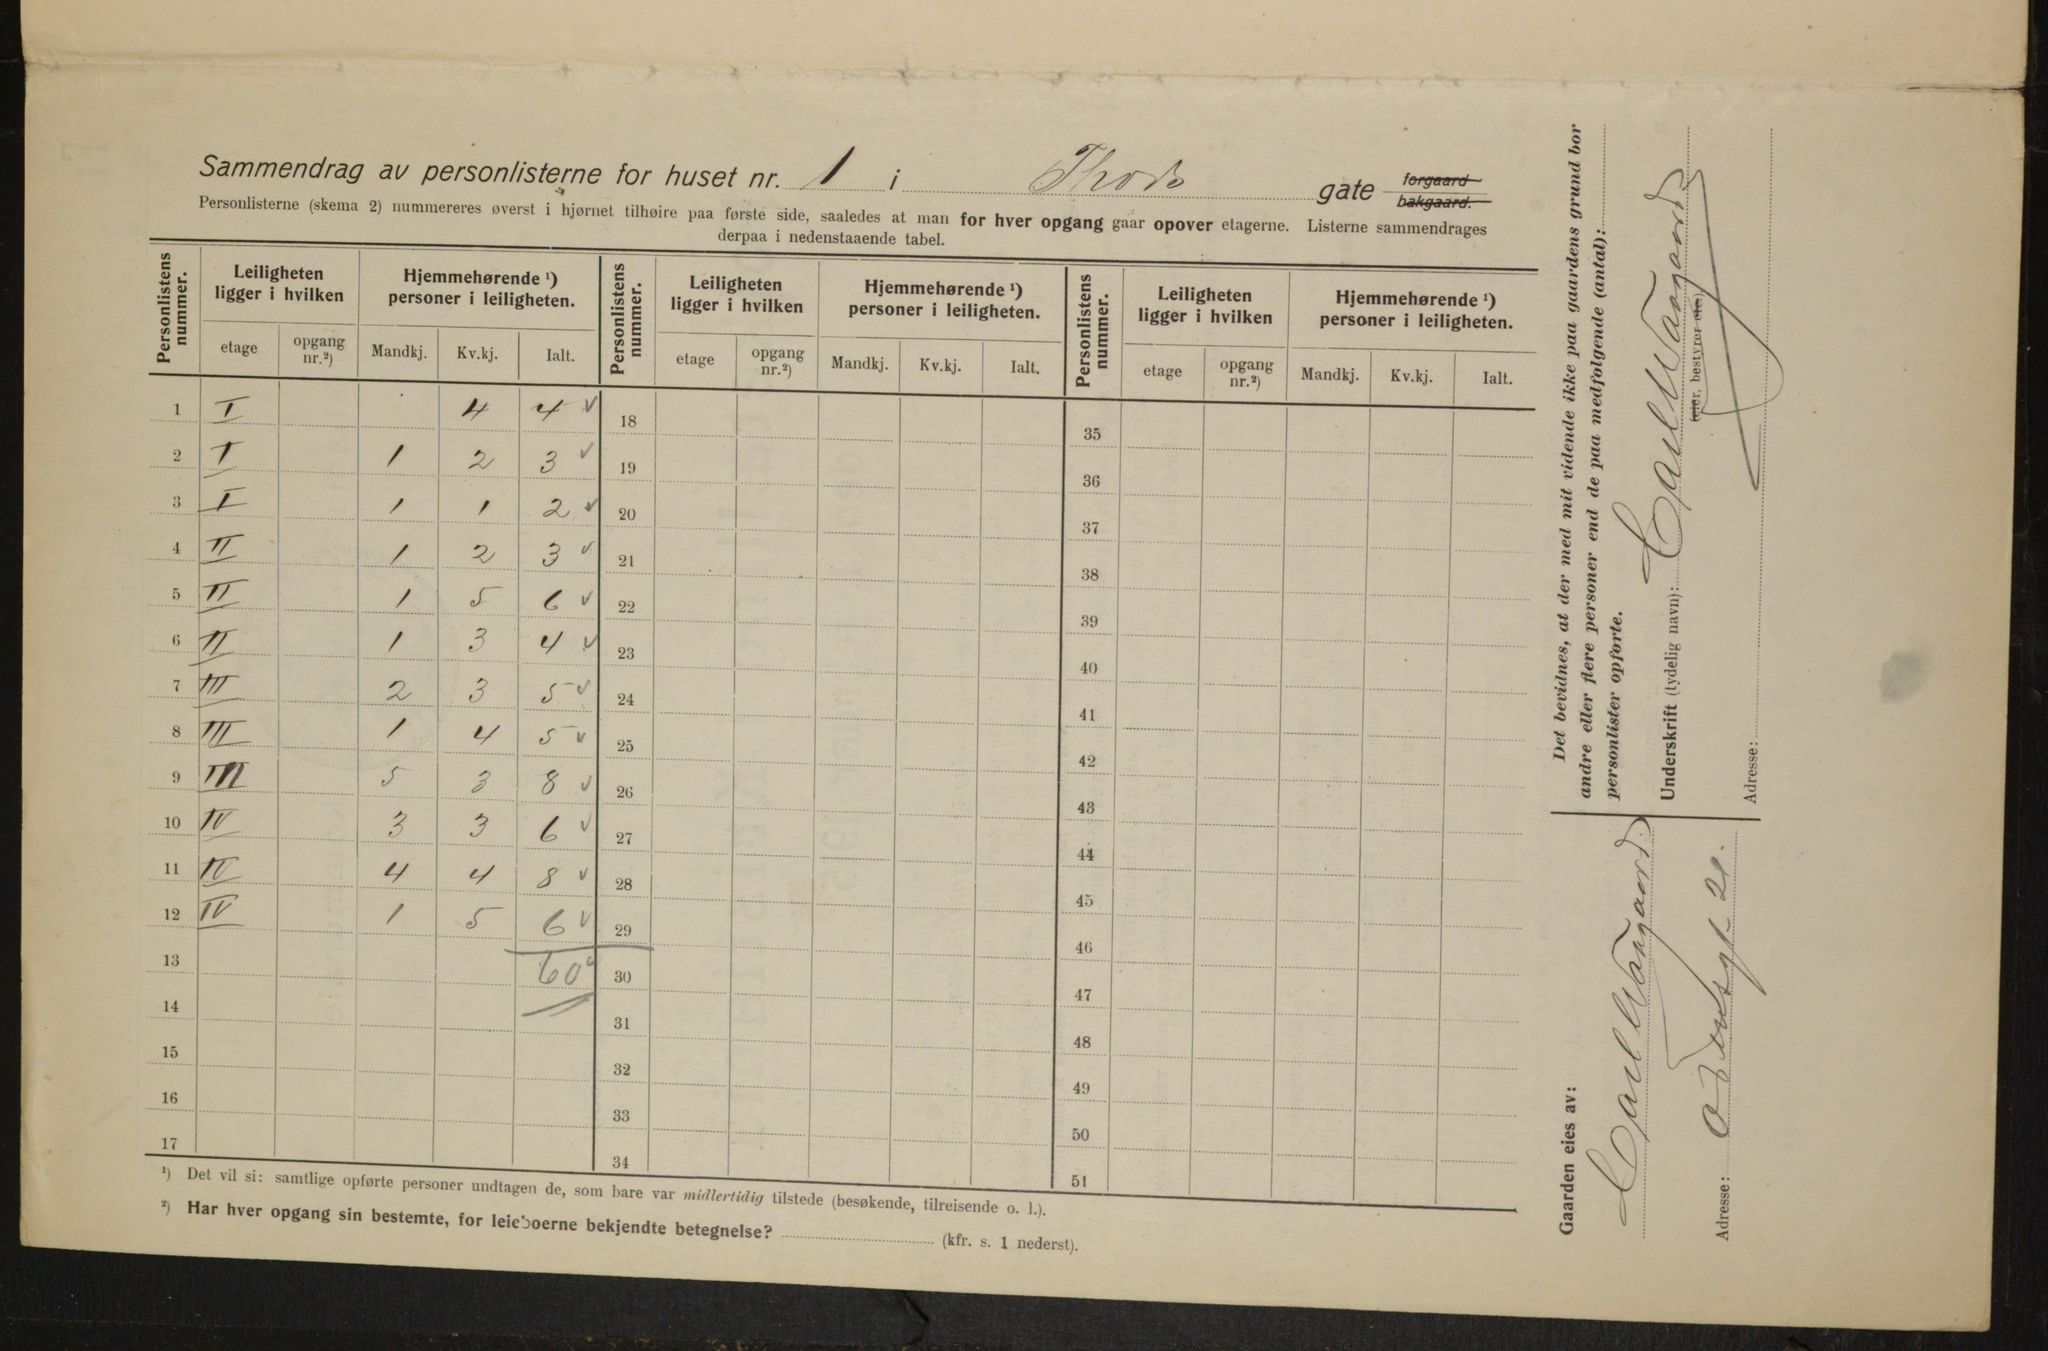 Sammendrag av personlisterne for huset nr. 1 i Thors gate forgaard bakgaard.
Personlisterne (skema 2) nummereres øverst i hjørnet tilhøire paa første side, saaledes at man for hver opgang gaar opover etagerne. Listerne sammendrages
derpaa i nedenstaaende tabel.
Personlistens nummer. Leiligheten ligger i hvilken Hjemmehørende ¹) personer i leiligheten. Personlistens nummer. Leiligheten ligger i hvilken Hjemmehørende ¹) personer i leiligheten. Personlistens nummer. Leiligheten ligger i hvilken Hjemmehørende ¹) personer i leiligheten.
etage opgang nr.²) Mandkj. Kv.kj. Ialt. etage opgang nr.²) Mandkj. Kv.kj. Ialt. etage opgang nr.²) Mandkj. Kv.kj. Ialt.
1 I 4 4 ✓ 18 35
2 I 1 2 3 ✓ 19 36
3 I 1 1 2 ✓ 20 37
4 II 1 2 3 ✓ 21 38
5 II 1 5 6 ✓ 22 39
6 II 1 3 4 ✓ 23 40
7 III 2 3 5 ✓ 24 41
8 III 1 4 5 ✓ 25 42
9 III 5 3 8 ✓ 26 43
10 IV 3 3 6 ✓ 27 44
11 IV 4 4 8 ✓ 28 45
12 IV 1 5 6 ✓ 29 46
13 60 ✓ 30 47
14 31 48
15 32 49
16 33 50
17 34 51
¹) Det vil si: samtlige opførte personer undtagen de, som bare var midlertidig tilstede (besøkende, tilreisende o. l.).
²) Har hver opgang sin bestemte, for leieboerne bekjendte betegnelse? (kfr. s. 1 nederst).
Det bevidnes, at der med mit vidende ikke paa gaardens grund bor
andre eller flere personer end de paa medfølgende (antal):
personlister opførte.
Underskrift (tydelig navn): Carl Waagaard
(eier, bestyrer etc.)
Adresse:
Gaarden eies av:
Carl Waagaard
Adresse: 21.